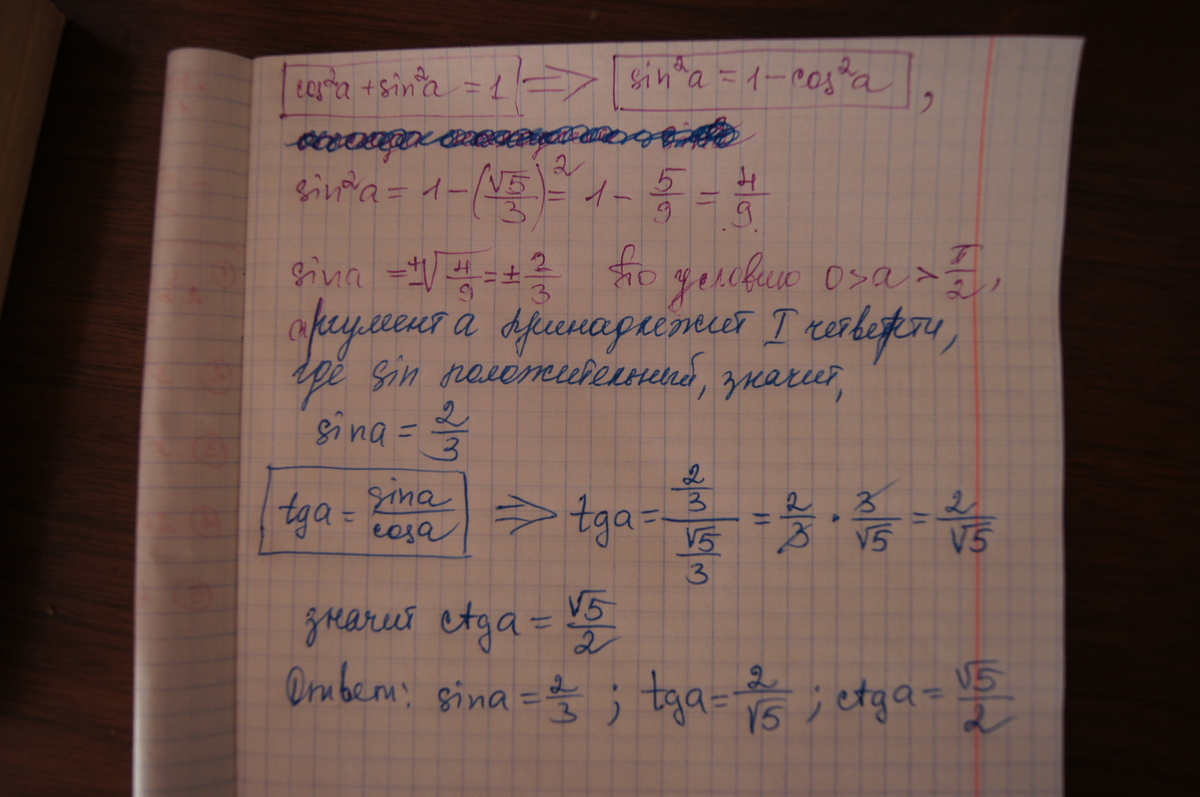 cos²a + sin²a = 1 ⇒ sin²a = 1 - cos²a,
sin²a = 1 - (√5/3)² = 1 - 5/9 = 4/9
sina = ±√4/9 = ± 2/3 По условию 0 > a > π/2,
аргумент a принадлежит I четверти,
где sin положительный, значит,
sina = 2/3
tga = sina/cosa ⇒ tga = (2/3)/(√5/3) = 2/3 · 3/√5 = 2/√5
значит ctga = √5/2
Ответ: sina = 2/3 ; tga = 2/√5 ; ctga = √5/2